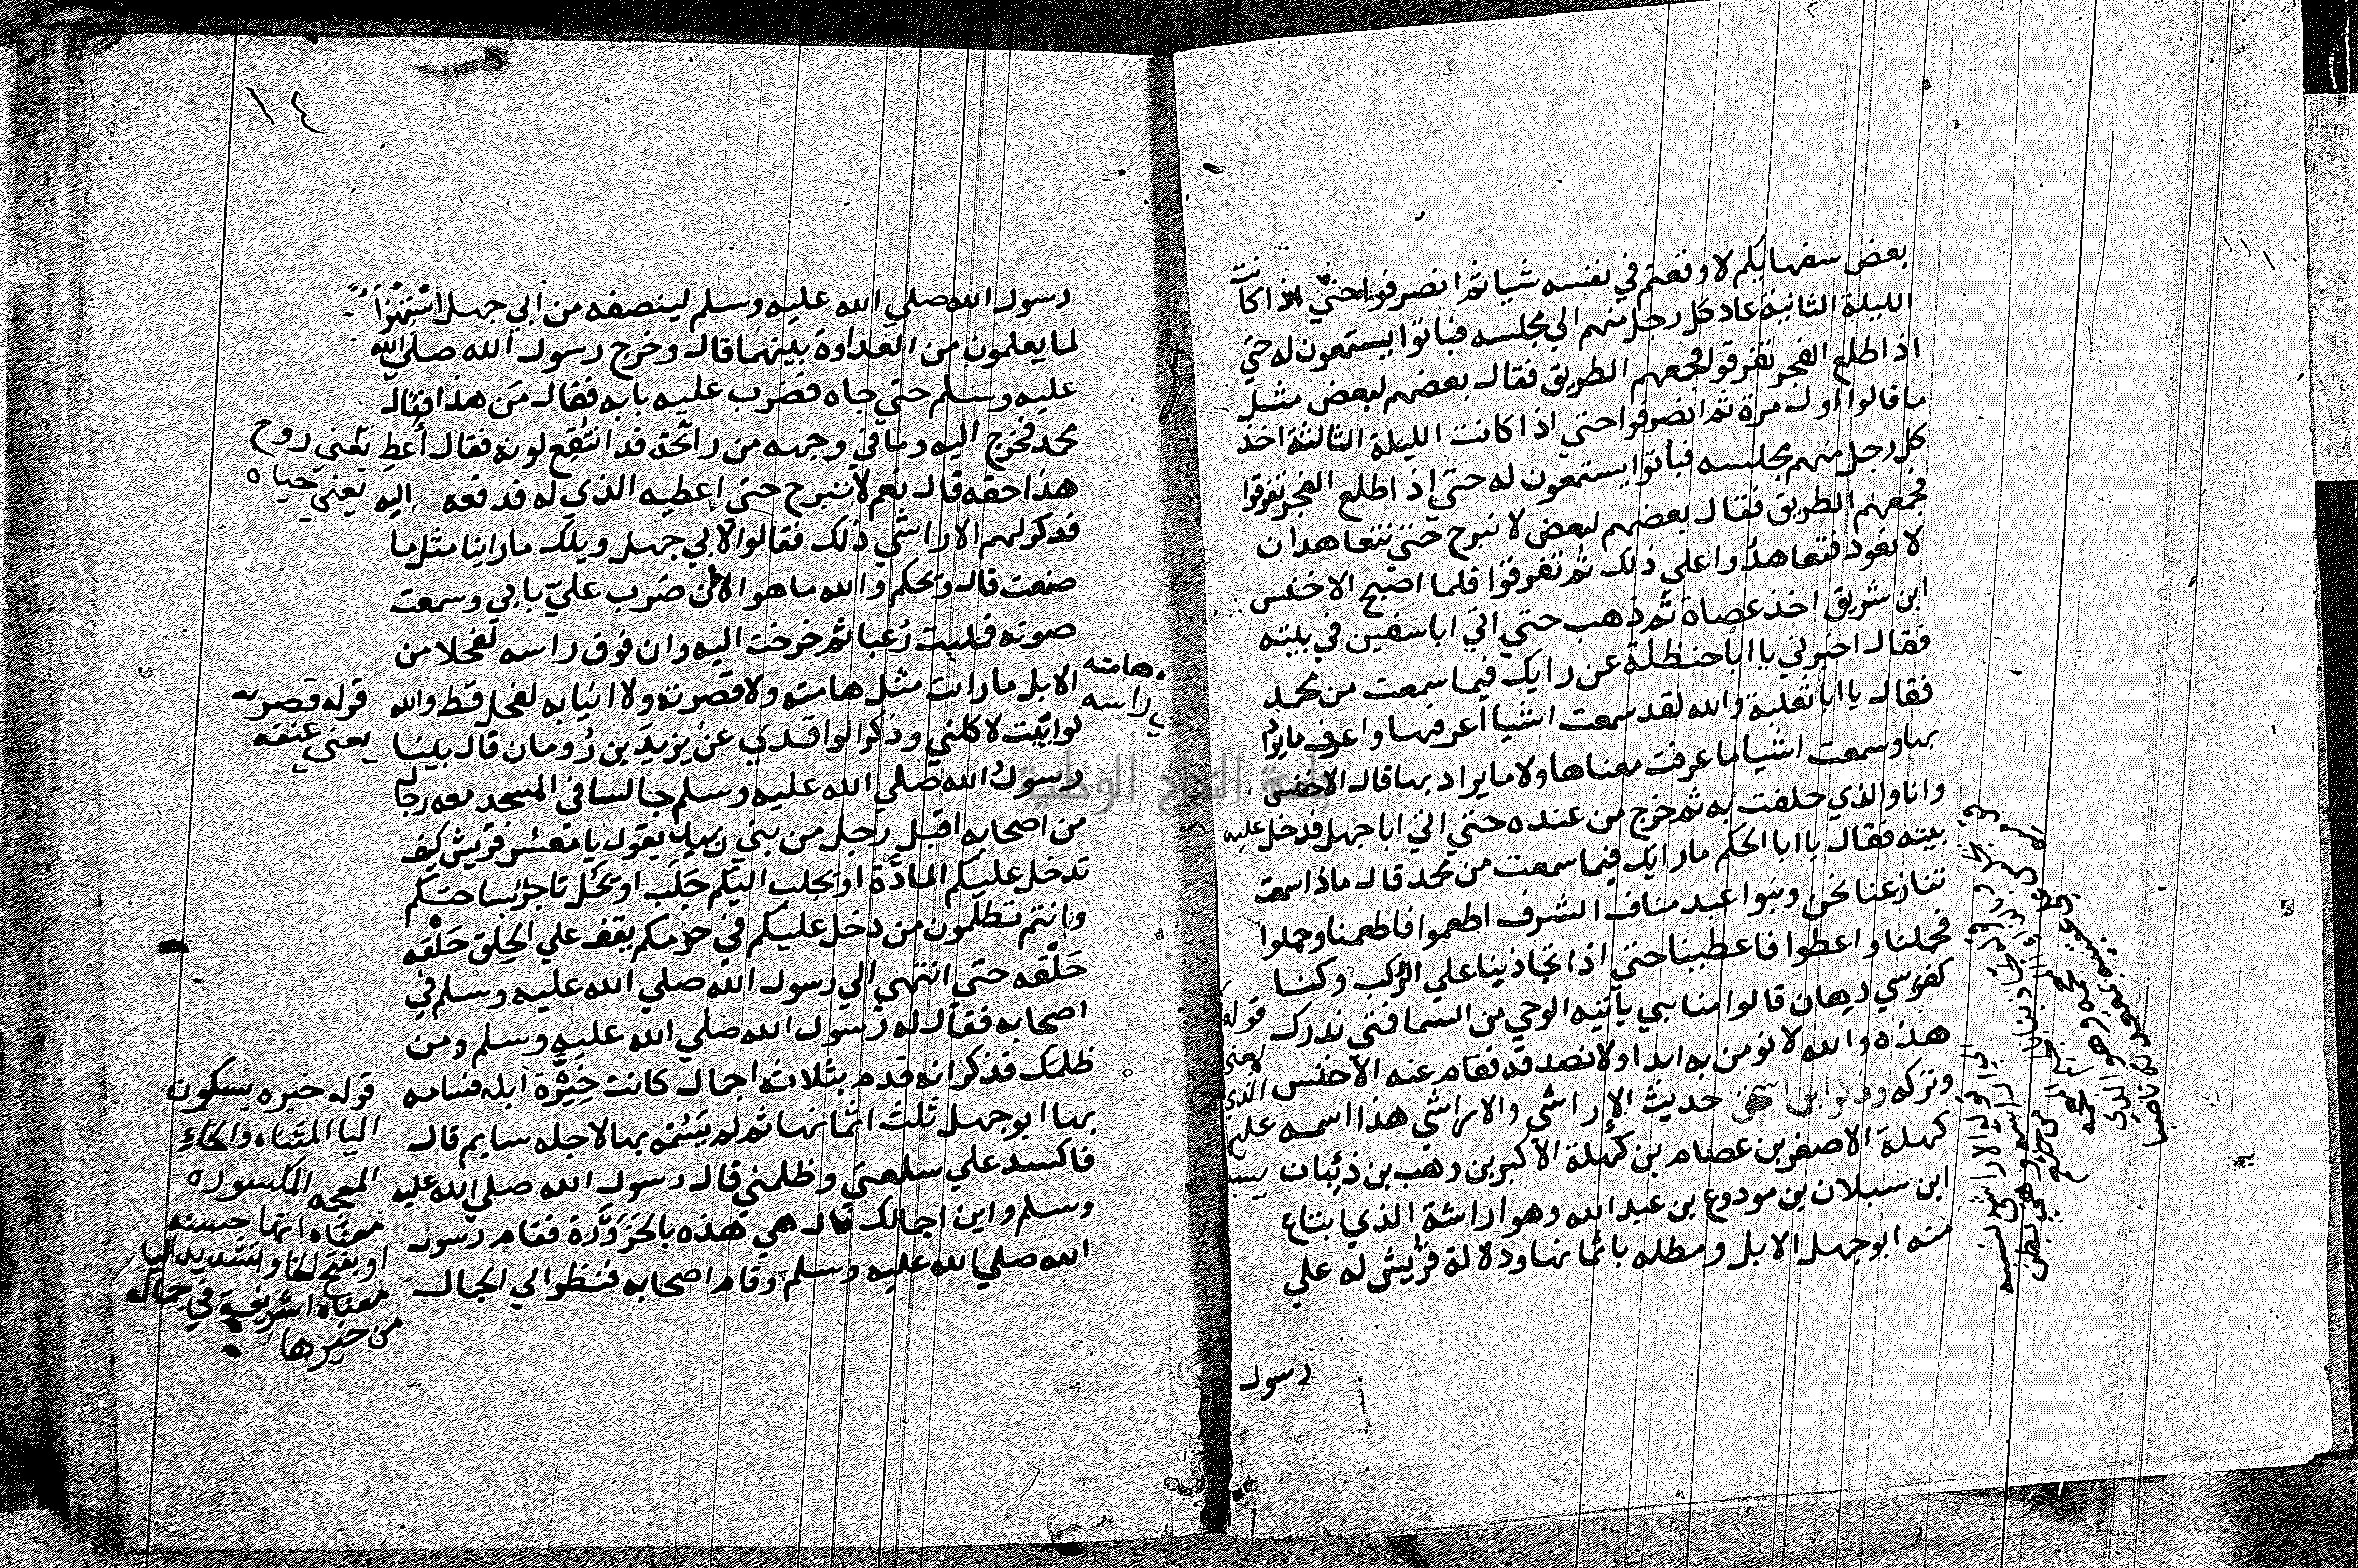 بعض سفهايكم لاوقعتم في نفسه شيا ثم انصرفوا حتي اذا كانت
الليلة الثانية عاد كل رجل منهم الي مجلسه فباتوا يستمعون له حتي
اذا طلع الفجر تفرقوا فجمعهم الطريق فقال بعضهم لبعض مثل
ما قالوا اول مرة ثم انصرفوا حتي اذا كانت الليلة الثالثة اخذ
كل رجل منهم مجلسه فباتوا يستمعون له حتي اذا طلع الفجر تفرقوا
فجمعهم الطريق فقال بعضهم لبعض لا نبرح حتي نتعاهد ان
لا نعود فتعاهدوا علي ذلك ثم تفرقوا فلما اصبح الاخنس
ابن شريق اخذ عصاة ثم ذهب حتي اتي ابا سفين في بيته
فقال اخبرني يا ابا حنظلة عن رايك فيما سمعت من محمد
فقال يا ابا ثعلبة والله لقد سمعت اشيا اعرفها واعرف ما يراد
بها وسمعت اشيا ما عرفت معناها ولا ما يراد بها قال الاخنس
وانا والذي حلفت به ثم خرج من عنده حتي اتي ابا جهل فدخل عليه
بيته فقال يا ابا الحكم ما رايك فيما سمعت من محمد قال ماذا سمعت
تنازعنا نحن وبنوا عبد مناف الشرف اطعموا فاطعمنا وحملوا
فحملنا واعطوا فاعطينا حتي اذا تجاذينا علي الركب وكنا
كفرسي رهان قالوا منا نبي ياتيه الوحي من السما فمتي ندرك
هذه والله لا نومن به ابدا ولا نصدقه فقام عنه الاخنس
وتركه وذكر ابن اسحق حديث الاراشي والاراشي هذا اسمه
كهلة الاصغر بن عصام بن كهلة الاكبر بن وهب بن ذئبان
ابن سبلان بن مودوع بن عبد الله وهو اراشة الذي ابتاع
منه ابو جهل الابل ومطله باثمانها ودلالة قريش له علي
قوله
يعني
الذي
عليه
رسول
١٤
رسول الله صلي الله عليه وسلم لينصفه من ابي جهل استهزاً
لما يعلمون من العداوة بينهما قال وخرج رسول الله صلي الله
عليه وسلم حتي جاه فضرب عليه بابه فقال من هذا فقال
محمد فخرج اليه وما في وجهه من رائحة قد انتقع لونه فقال أعط
هذا حقه قال نعم لا تبرح حتي اعطيه الذي له فدفعه اليه
فذكر لهم الاراشي ذلك فقالوا لابي جهل ويلك ما راينا مثل ما
صنعت قال ويحكم والله ما هو الا ان ضرب عليّ بابي وسمعت
صوته فملئت رُعبا ثم خرجت اليه وان فوق راسه لفحلا من
الابل ما رات مثل هامته ولا قصرته ولا انيابه لفحل قط والله
لو ابيت لاكلني وذكر الواقدي عن يزيد بن رُومان قال بينا
رسول الله صلي الله عليه وسلم جالسا في المسجد معه رجال
من اصحابه اقبل رجل من بني زبيد يقول يا معشر قريش كيف
تدخل عليكم المادّة او يجلب اليكم جلب او يحل تاجر بساحتكم
وانتم تظلمون من دخل عليكم في حرمكم يقف علي الحلق حَلْقه
حَلْقه حتي انتهي الي رسول الله صلي الله عليه وسلم في
اصحابه فقال له رسول الله صلي الله عليه وسلم ومن
ظلمك فذكر انه قدم بثلاث اجمال كانت خيرة ابله فسامه
بها ابو جهل ثلث اثمانها ثم لم يسمه بها لاجله سايم قال
فاكسد علي سلعتي وظلمني قال رسول الله صلي الله عليه
وسلم واين اجمالك قال هي هذه بالحزورة فقام رسول
الله صلي الله عليه وسلم وقام اصحابه فنظر الي الجمال
يعني روح
يعني حياه
هامته
راسه
قوله قصرته
يعني عنقه
قوله خيره بسكون
اليا المثناه والخاء
المعجمه المكسوره
معناه انها حسنه
او بفتح الخا وتشديد اليا
معناه اشريفة في جماله
من خيرها